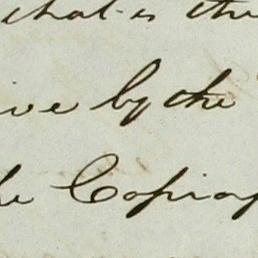 that is the
ive by the
le Copiap